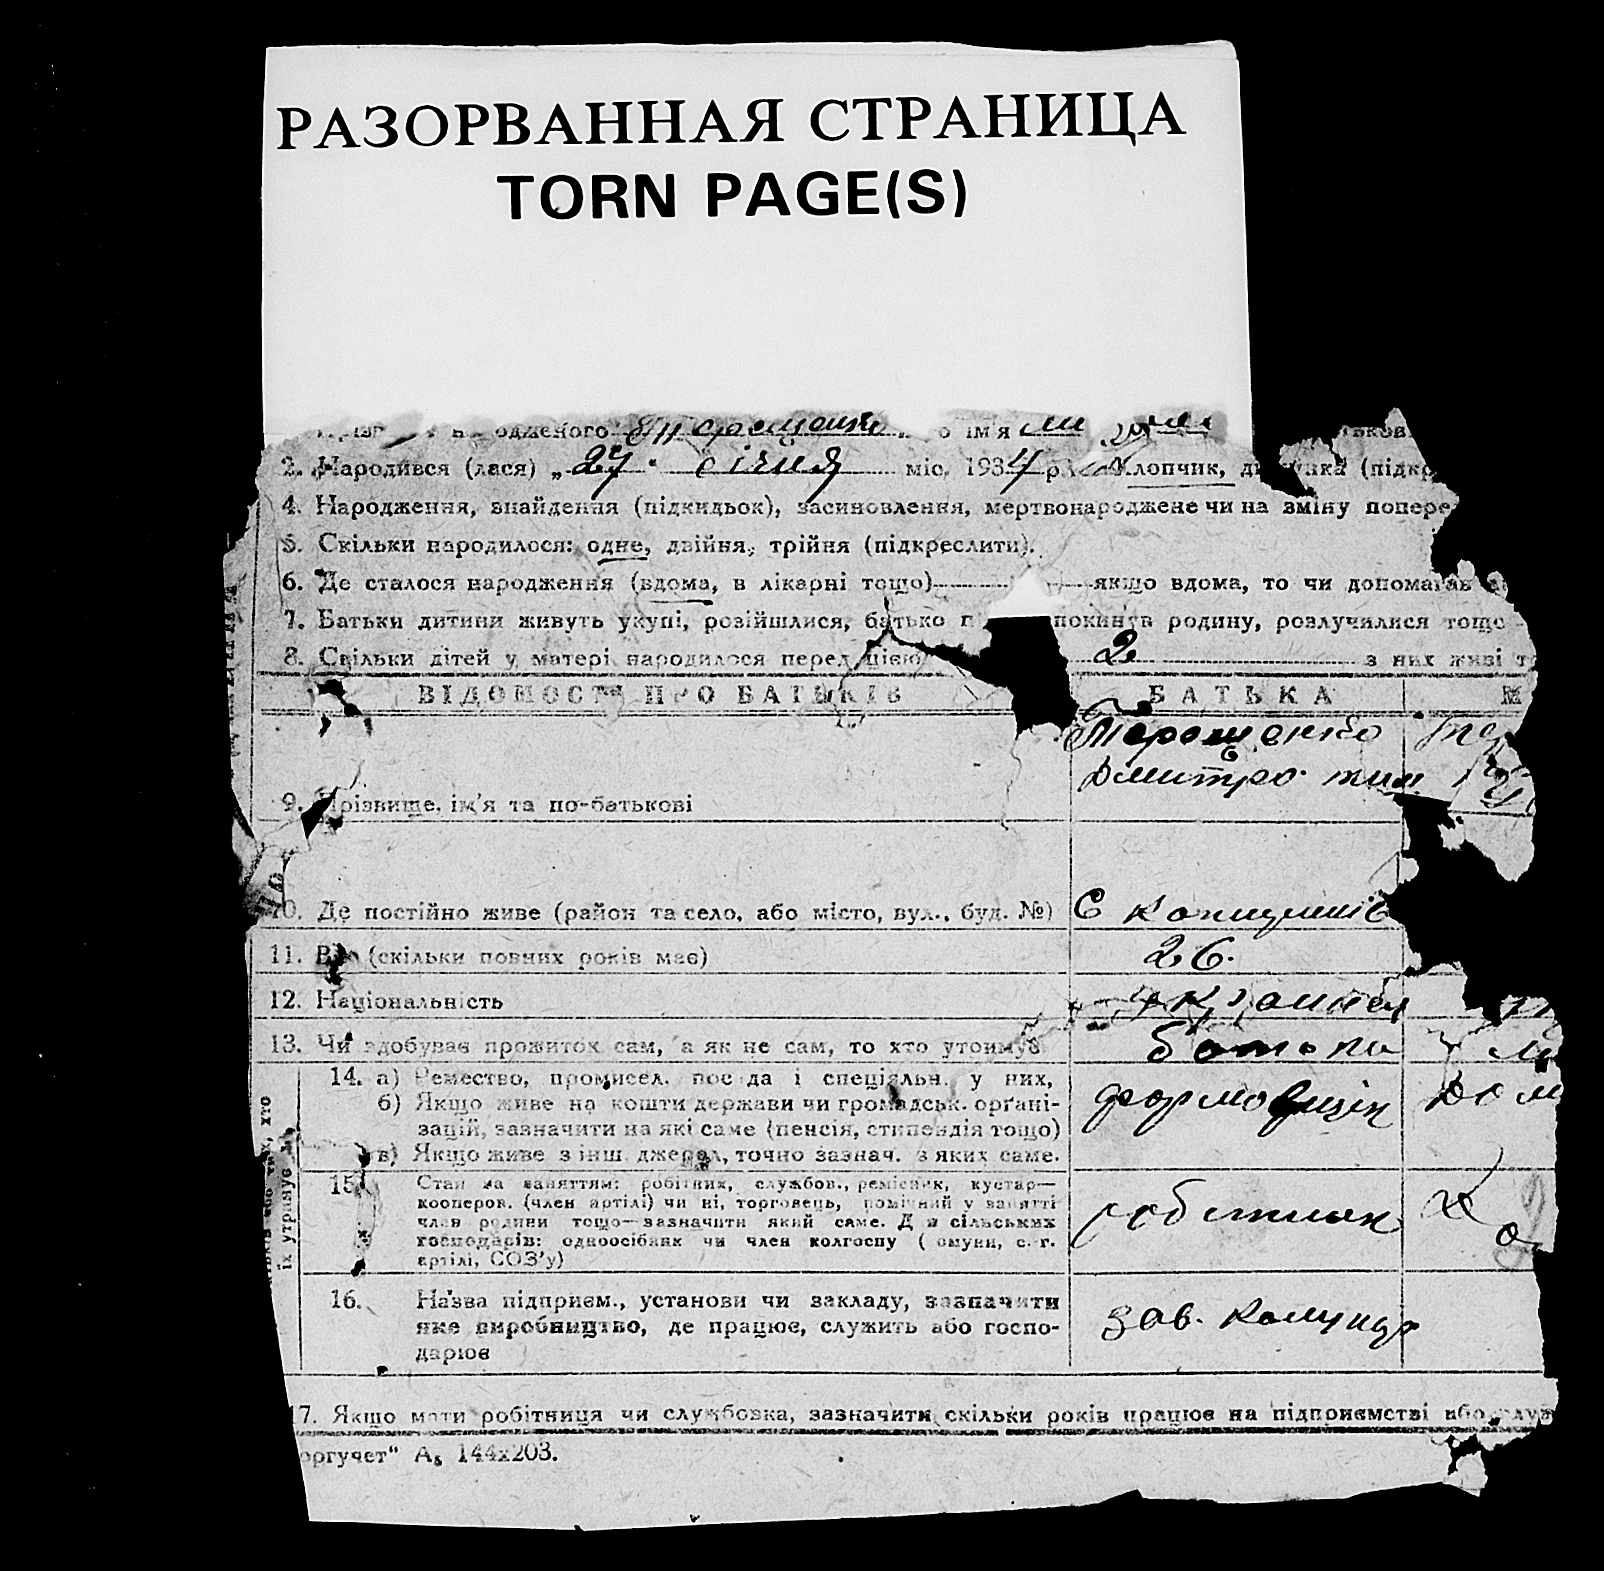 РАЗОРВАННАЯ СТРАНИЦА
TORN PAGE(S)
одженого Терещенко ім'я
2. Народився (лася) „27" січня міс. 1934 р. Хлопчик, (підкр
4. Народження, знайдення (підкидьок), засиновлення, мертвонароджене чи на зміну попере
5. Скільки народилося: одне, двійня, трійня (підкреслити).
6. Де сталося народження (вдома, в лікарні тощо) якщо вдома, то чи допомагав
7. Батьки дитини живуть укупі, розійшлися, батько п покинув родину, розлучилися тощо
8. Скільки дітей у матері народилося перед цією 2 з них живі т
ВІДОМОСТІ ПРО БАТЬКІВ БАТЬКА М
Терещенко
Дмитро Тим
9. Прізвище, ім'я та по-батькові
10. Де постійно живе (район та село, або місто, вул., буд. №) С
11. Вік (скільки повних років має) 26.
12. Національність українец
13. Чи здобуває прожиток сам, а як не сам, то хто утримує
14. а) Ремество, промисел, посада і спеціяльн. у них, формовщік Дом
б) Якщо живе на кошти держави чи громадськ. орґані-
зацій, зазначити на які саме (пенсія, стипендія тощо)
в) Якщо живе з інш. джерел, точно зазнач. з яких саме.
15. Стан за заняттям: робітник, службов., ремісник, кустар—
кооперов. (член артілі) чи ні, торговець, помічний у занятті
член родини тощо—зазначити який саме. Для сільських
господарів: одноосібник чи член колгоспу ( омуни, с.-г.
артілі, СОЗ'у)
робітник
16. Назва підприєм., установи чи закладу, зазначити
яке виробництво, де працює, служить або госпо-
дарює
зав.
17. Якщо мати робітниця чи службовка, зазначити скільки років працює на підприємстві або служ
оргучет" А5 144x203.
їх утримує